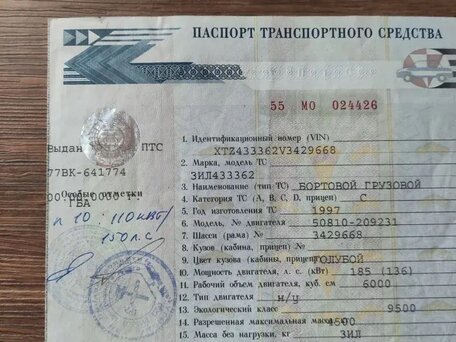 ПАСПОРТ ТРАНСПОРТНОГО СРЕДСТВА
55 МО 024426
Выдан ПТС
77ВК-641774
00.00.0000 г.
Особые отметки
ГБА
п 10: 110 кВт/
150 л.с.
1. Идентификационный номер (VIN) XTZ433362V3429668
2. Марка, модель ТС ЗИЛ433362
3. Наименование (тип ТС) БОРТОВОЙ ГРУЗОВОЙ
4. Категория ТС (А, В, С, D, прицеп) С
5. Год изготовления ТС 1997
6. Модель, № двигателя 50810-209231
7. Шасси (рама) № 3429668
8. Кузов (кабина, прицеп) №
9. Цвет кузова (кабины, прицепа) ГОЛУБОЙ
10. Мощность двигателя, л. с. (кВт) 185 (136)
11. Рабочий объем двигателя, куб. см 6000
12. Тип двигателя н/у
13. Экологический класс 9500
14. Разрешенная максимальная масса, кг 4500
15. Масса без нагрузки, кг ЗИЛ